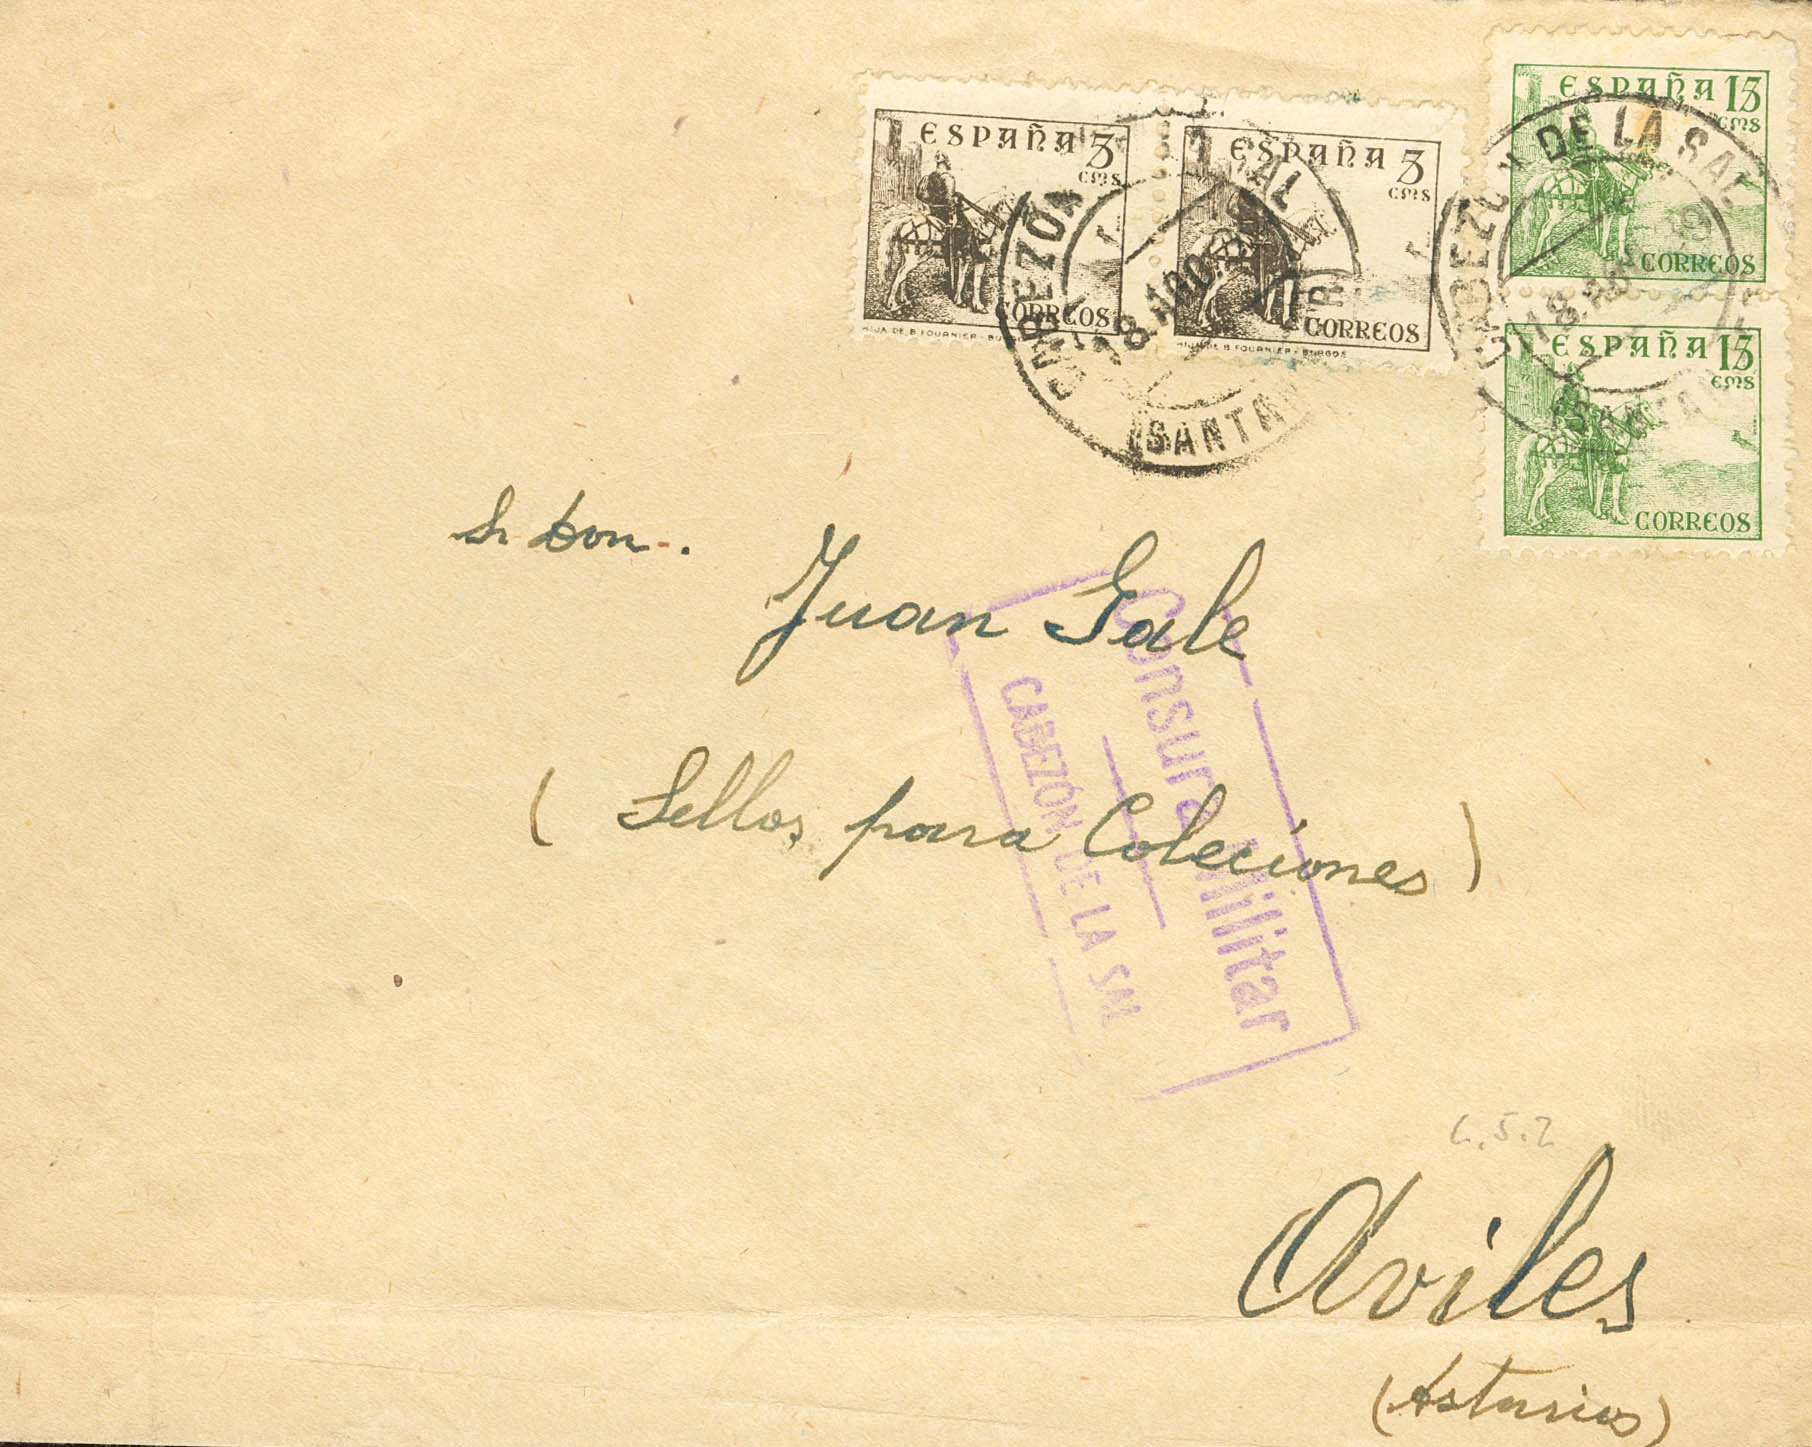 ESPAÑA 5
CMS
CORREOS
HIJA DE B. FOURNIER - BURGOS
ESPAÑA 5
CMS
CORREOS
HIJA DE B. FOURNIER - BURGOS
ESPAÑA 15
CMS
CORREOS
ESPAÑA 15
CMS
CORREOS
CABEZÓN DE LA SAL
(SANTAN
CABEZON DE LA SAL
18
(SANTAN
Sr don.
Juan Gale
(Sellos para Coleciones)
Censura Militar
CABEZÓN DE LA SAL
Aviles
(Asturias)